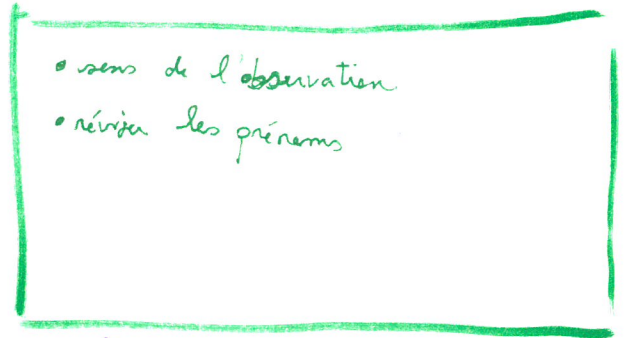 • sens de l'observation
• réviser les prénoms